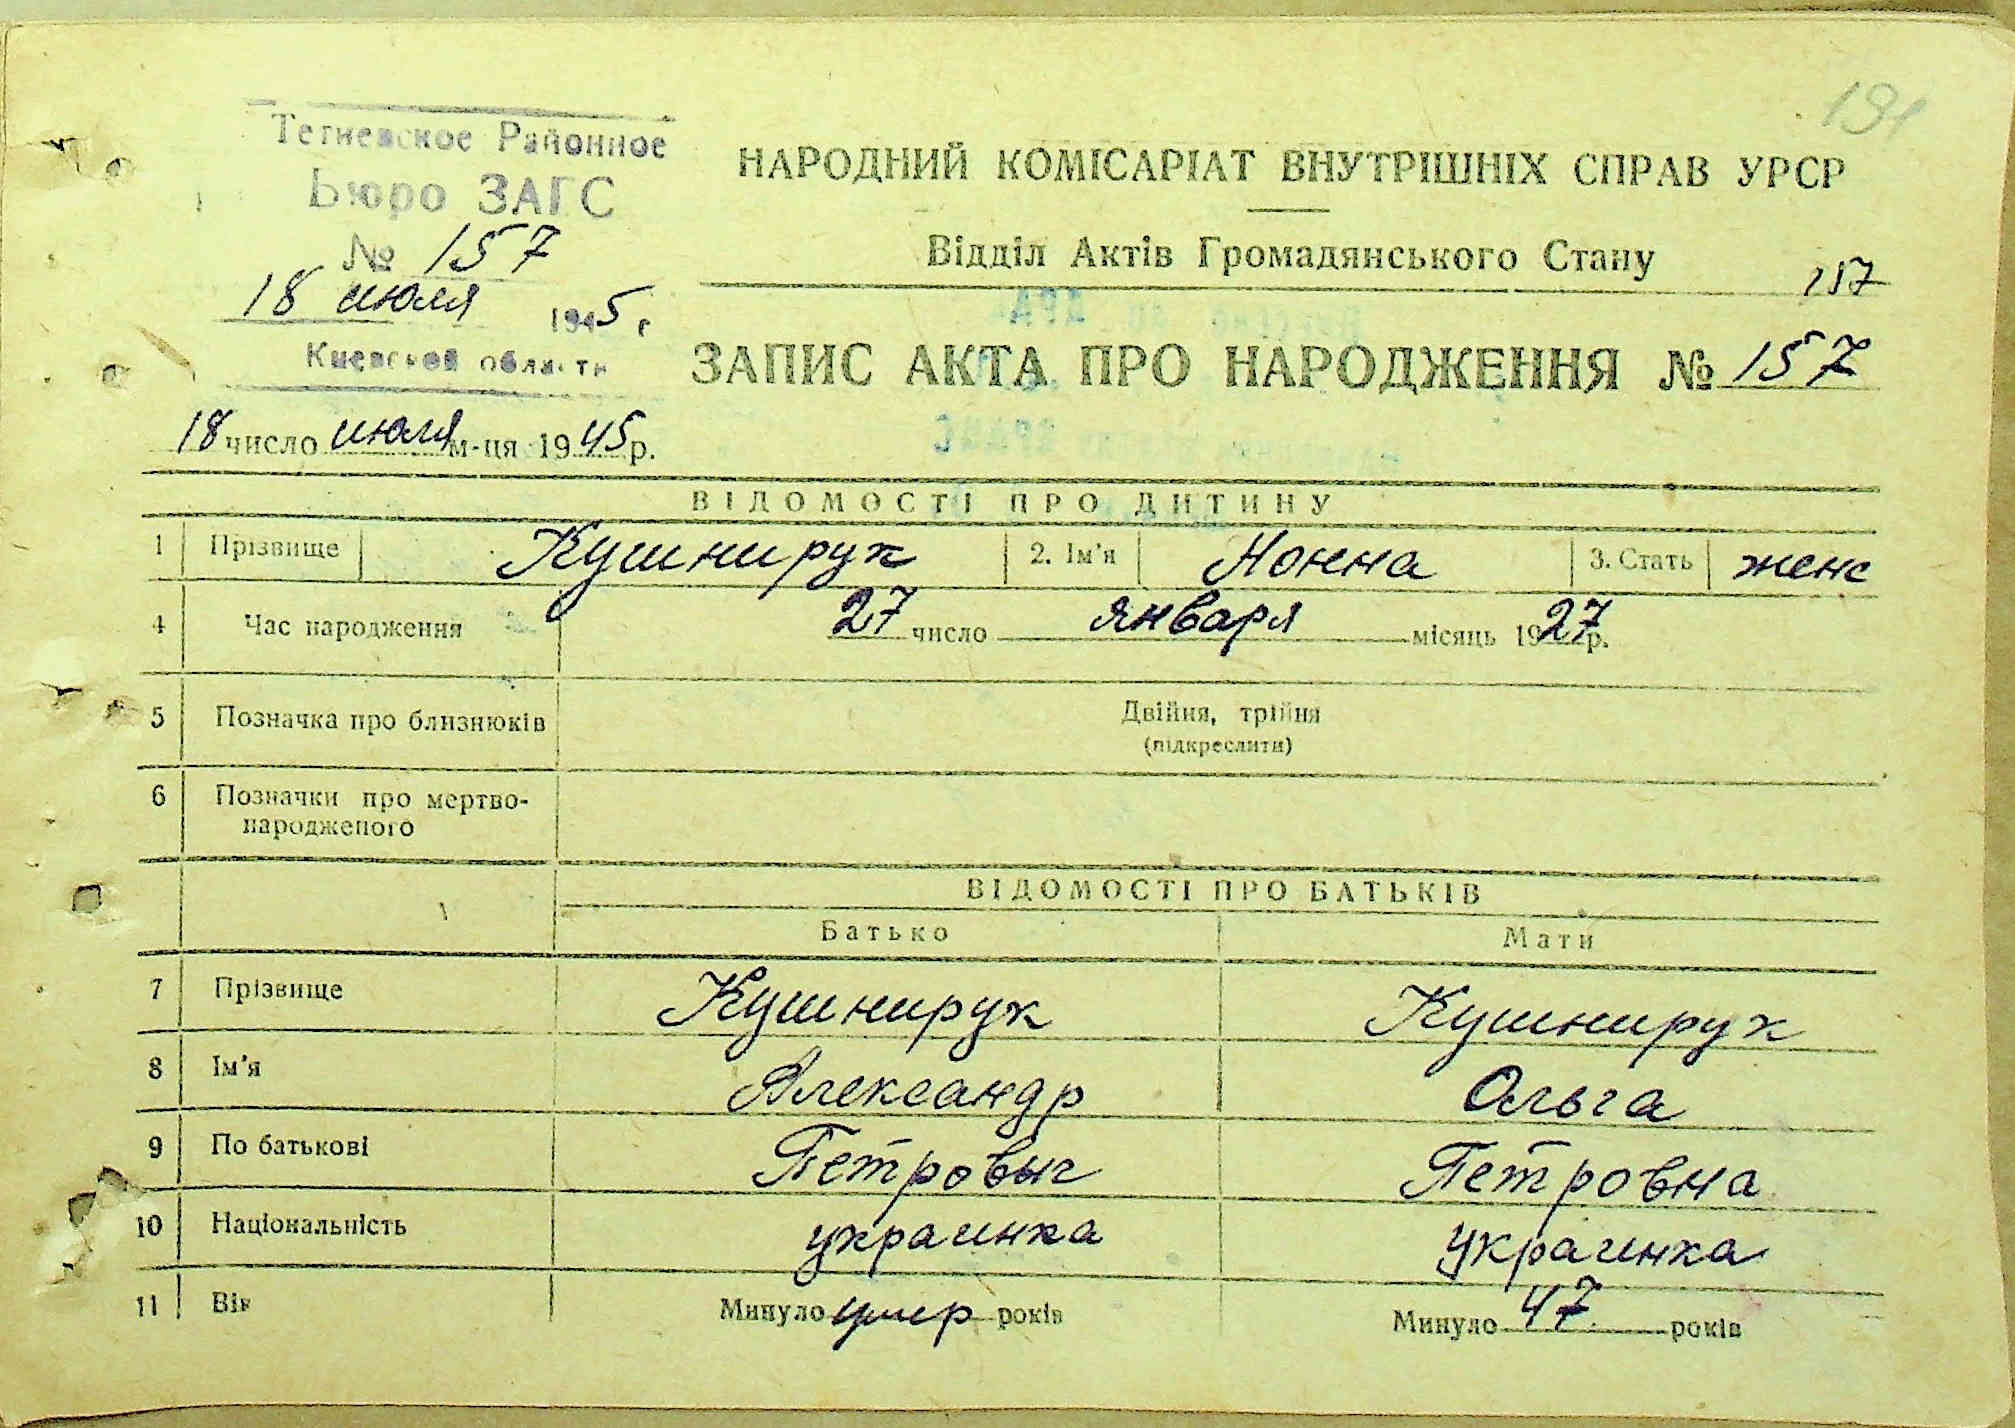 191
Тетиевское Районное
Бюро ЗАГС
№ 157
18 июля 1945 г
Киевской области
НАРОДНИЙ КОМІСАРІАТ ВНУТРІШНІХ СПРАВ УРСР
Відділ Актів Громадянського Стану
157
ЗАПИС АКТА ПРО НАРОДЖЕННЯ № 157
18 число июля м-ця 1945 р.
ВІДОМОСТІ ПРО ДИТИНУ
1 Прізвище Кушнирук 2. Ім'я Нонна 3. Стать женс
4 Час народження 27 число января місяць 1927 р.
5 Позначка про близнюків Двійня, трійня
(підкреслити)
6 Позначки про мертво-
народженого
ВІДОМОСТІ ПРО БАТЬКІВ
Батько Мати
7 Прізвище Кушнирук Кушнирук
8 Ім'я Александр Ольга
9 По батькові Петровыч Петровна
10 Національність украинка украинка
11 Вік Минуло умер років Минуло 47 років